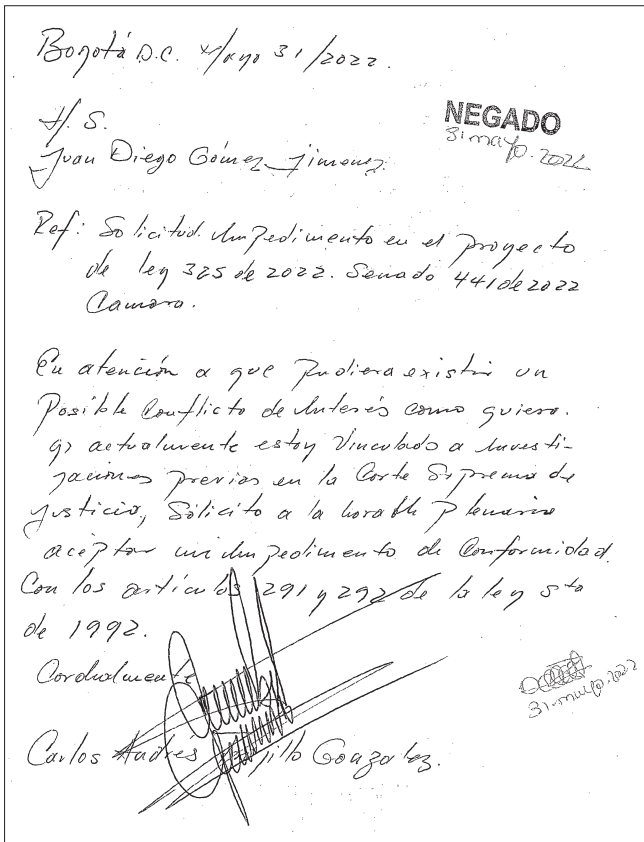 Bogotá D.C. Mayo 31/2022.
H.S.
NEGADO
31 mayo. 2022
Juan Diego Gómez Jimenez.
Ref: Solicitud Impedimento en el proyecto
de ley 325 de 2022. Senado 441 de 2022
Camara.
En atención a que pudiera existir un
Posible Conflicto de Interés como quiera.
q' actualmente estoy Vinculado a Investi-
gaciones previas en la Corte Suprema de
Justicia, Solicito a la Plenaria
aceptar mi Impedimento de Conformidad.
Con los artículos 291 y 292 de la ley 5ta
de 1992.
Cordialmente
31-mayo.2022
Carlos Andrés Gonzalez.